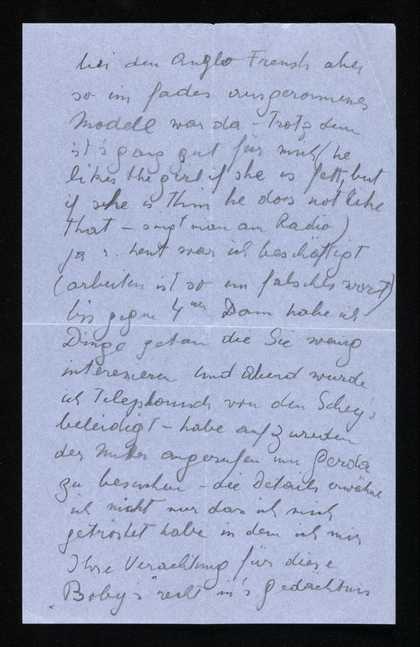 bei den Anglo French aber
so ein fades ausgeronnenes
Modell war da – trotzdem
ist's ganz gut für mich (he
likes the girl if she is fatt, but
if she is thin he does not like
that – singt man am Radio)
ja : heut war ich beschäftigt
(arbeiten ist so ein falsches wort)
bis gegen 4 Dann habe ich
Dinge getan die Sie wenig
interesieren Und abend wurde
ich Telephonisch von den Schey's
beleidigt – habe auf zureden
der Mutter angerufen um Gerda
zu besuchen – die Details erwähne
ich nicht nur das ich mich
getröstet habe in dem ich mir
Ihre Verachtung für diese
"Boby's" recht in's Gedächtnis